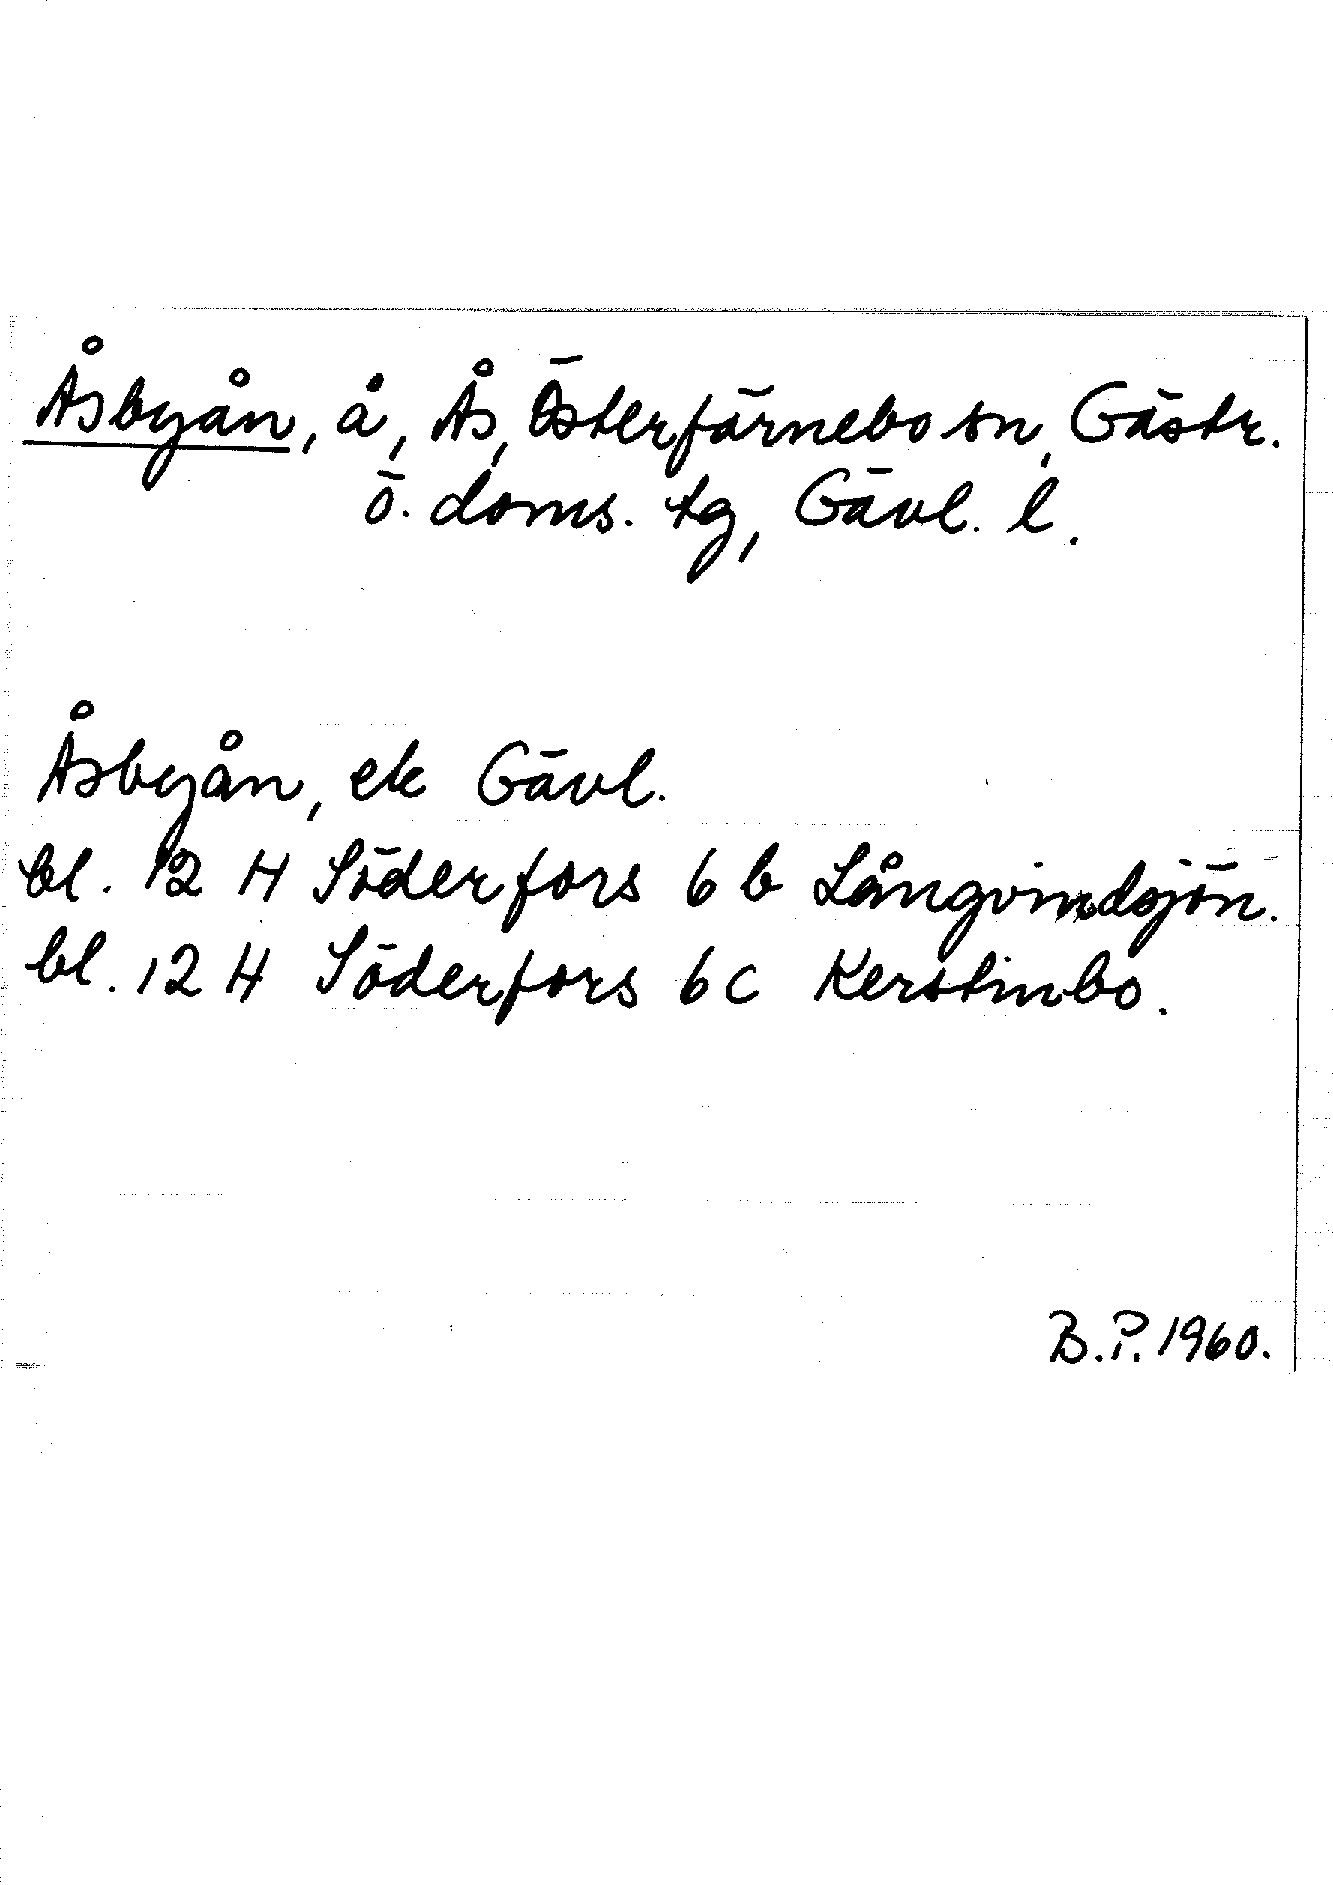 Åsbyån, å, Ås, Österfärnebo sn, Gästr.
ö. doms. tg, Gävl. l.
Åsbyån, ek Gävl.
bl. 12 H Söderfors 6 b Långvindsjön.
bl. 12 H Söderfors 6 c Kerstinbo.
B.P. 1960.